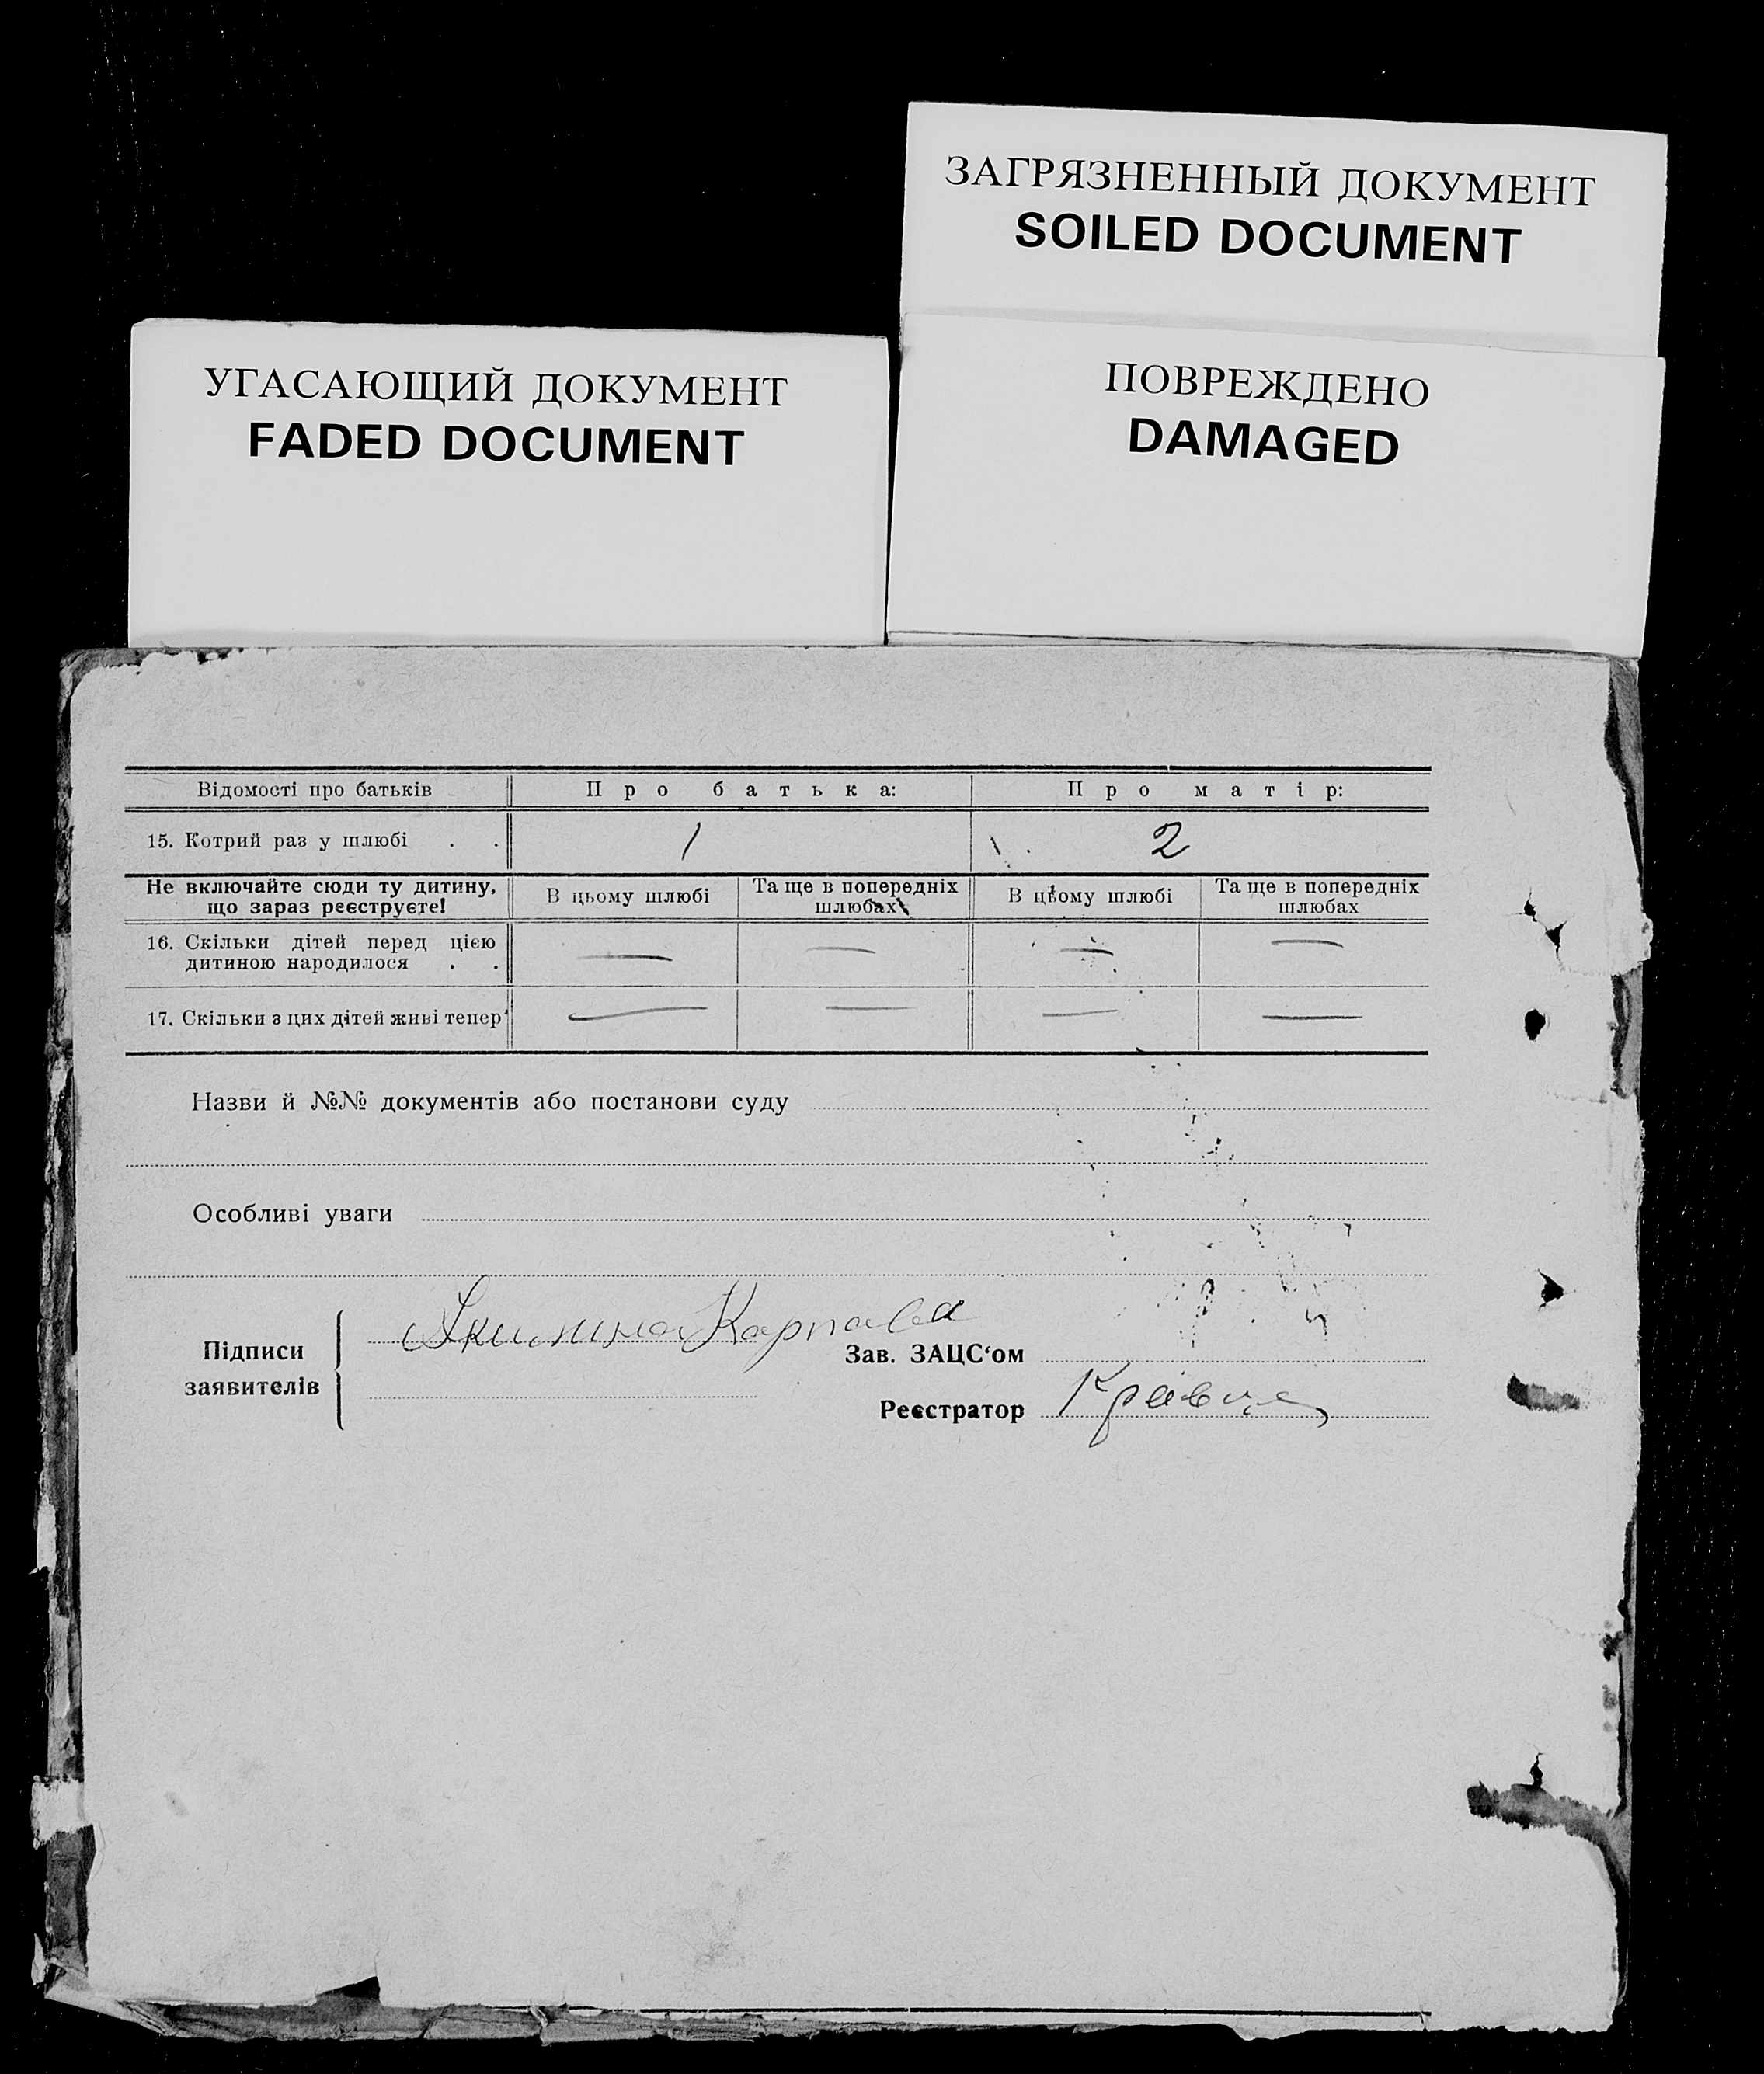 ЗАГРЯЗНЕННЫЙ ДОКУМЕНТ
SOILED DOCUMENT
УГАСАЮЩИЙ ДОКУМЕНТ
FADED DOCUMENT
ПОВРЕЖДЕНО
DAMAGED
Відомості про батьків Про батька: Про матір:
15. Котрий раз у шлюбі . . 1 2
Не включайте сюди ту дитину, що зараз реєструєте!
В цьому шлюбі
Та ще в попередніх шлюбах
В цьому шлюбі
Та ще в попередніх шлюбах
16. Скільки дітей перед цією
дитиною народилося . . — — — —
17. Скільки з цих дітей живі тепер — — — —
Назви й №№ документів або постанови суду
Особливі уваги
Підписи заявителів
Карпава
Зав. ЗАЦС‘ом
Реєстратор